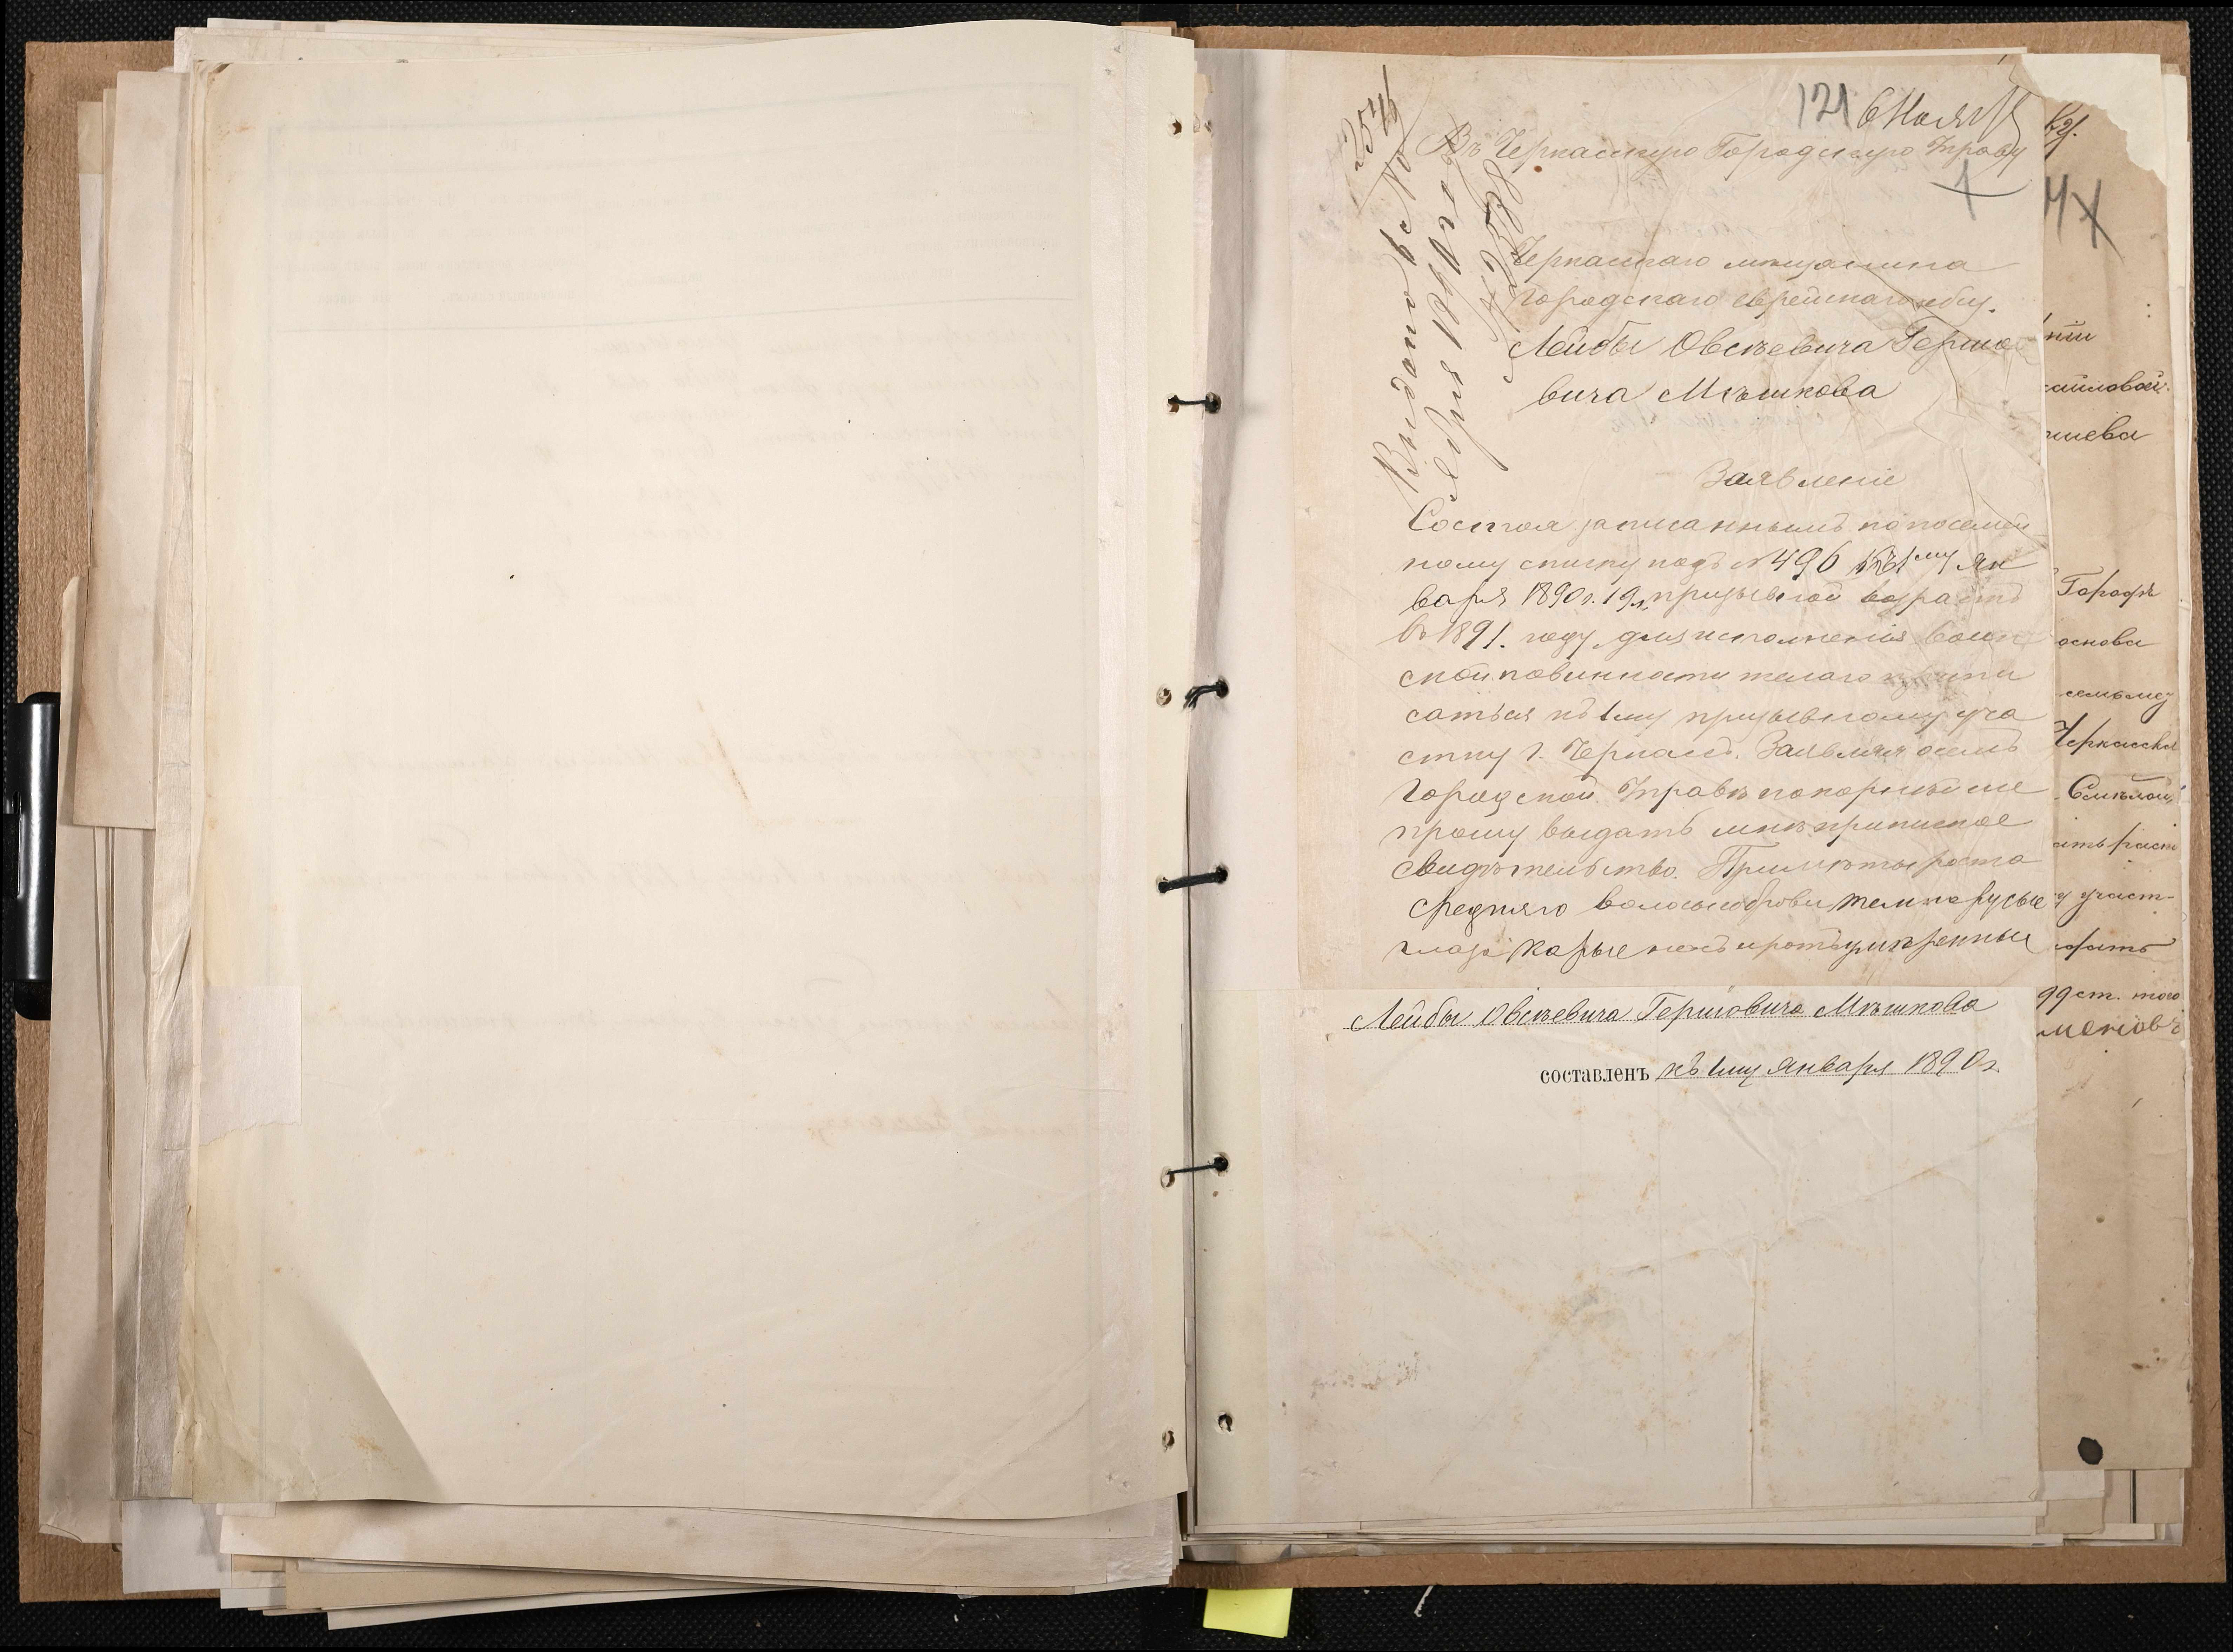 121 6 Ноя
Въ Черкасскую Городскую Управу
1
Черкасскаго мѣщанина
городскаго еврейскаго общ.
Лейбы Овсѣевича Гершо
вича Мѣшкова
Заявленіе
Состоя записаннымъ по посемей
ному списку подъ № 496 къ 1му Ян
варя 1890 г. 19 л. призывной возрастъ
въ 1891. году для исполненія воин
ской повинности желаю припи
саться къ 1му призывному уча
стку г. Черкассъ. Заявляя о семъ
Городской Управѣ покорнѣйше
прошу выдать мнѣ приписное
свидѣтельство. Примѣты роста
средняго волосы и брови темнорусые
глаза карые носъ и ротъ умѣренные
Лейбы Овсѣевича Гершовича Мѣшкова
составленъ къ 1му Января 1890 г.
Выдано св №
2546
ября 1890 г.
ніи
саиловой
шева
Городѣ
основа
Черкасск
участ-
99 ст. того